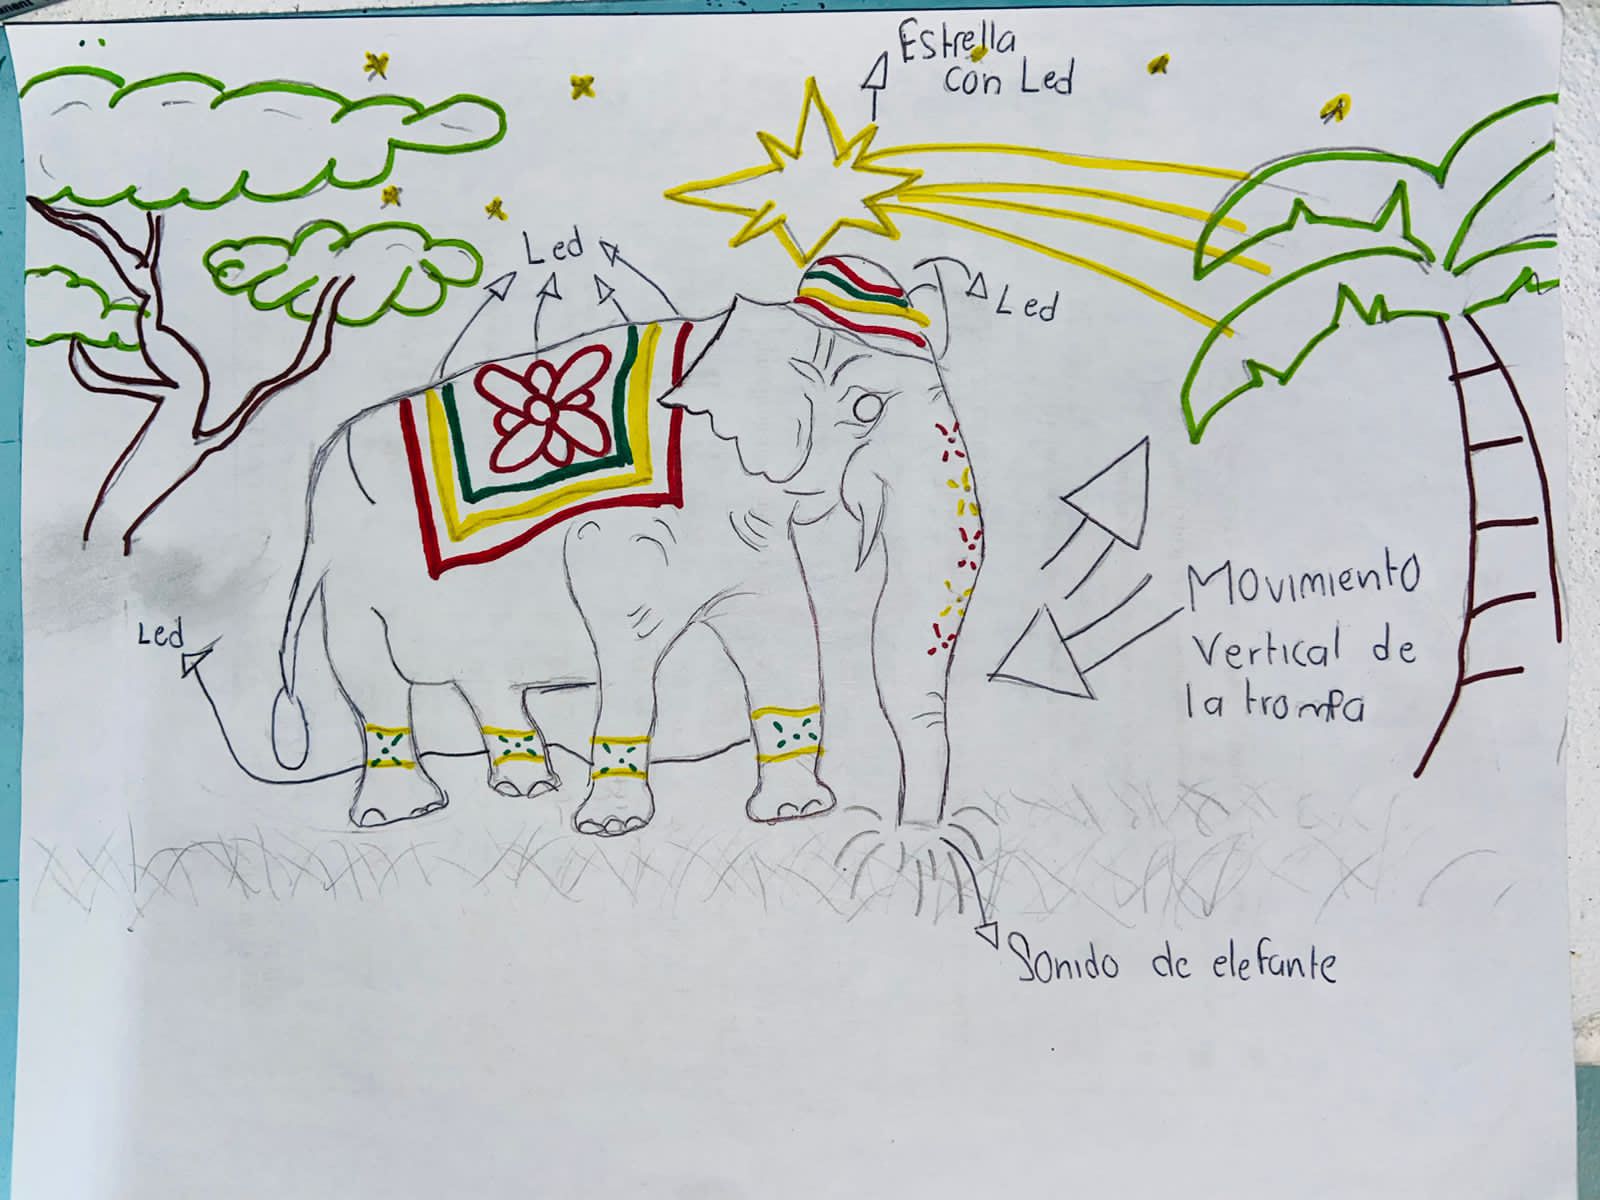 Estrella
con Led
Led
Led
Led
Movimiento
vertical de
la trompa
Sonido de elefante